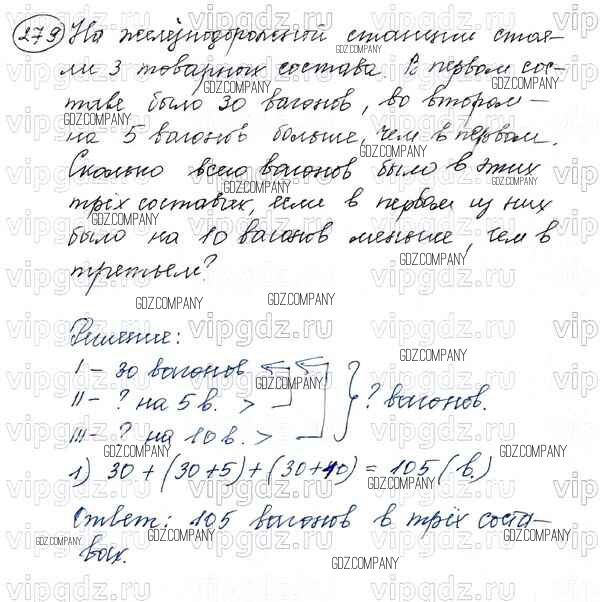 279 На железнодорожной станции стоя-
ли 3 товарных состава. В первом сос-
таве было 30 вагонов, во втором –
на 5 вагонов больше, чем в первом.
Сколько всего вагонов было в этих
трёх составах, если в первом из них
было на 10 вагонов меньше, чем в
третьем?
Решение:
I – 30 вагонов
II – ? на 5 в. >
III – ? на 10 в. >
? вагонов.
1) 30 + (30+5) + (30+10) = 105 (в.)
Ответ: 105 вагонов в трёх соста-
вах.
vipgdz.ru
GDZ.COMPANY